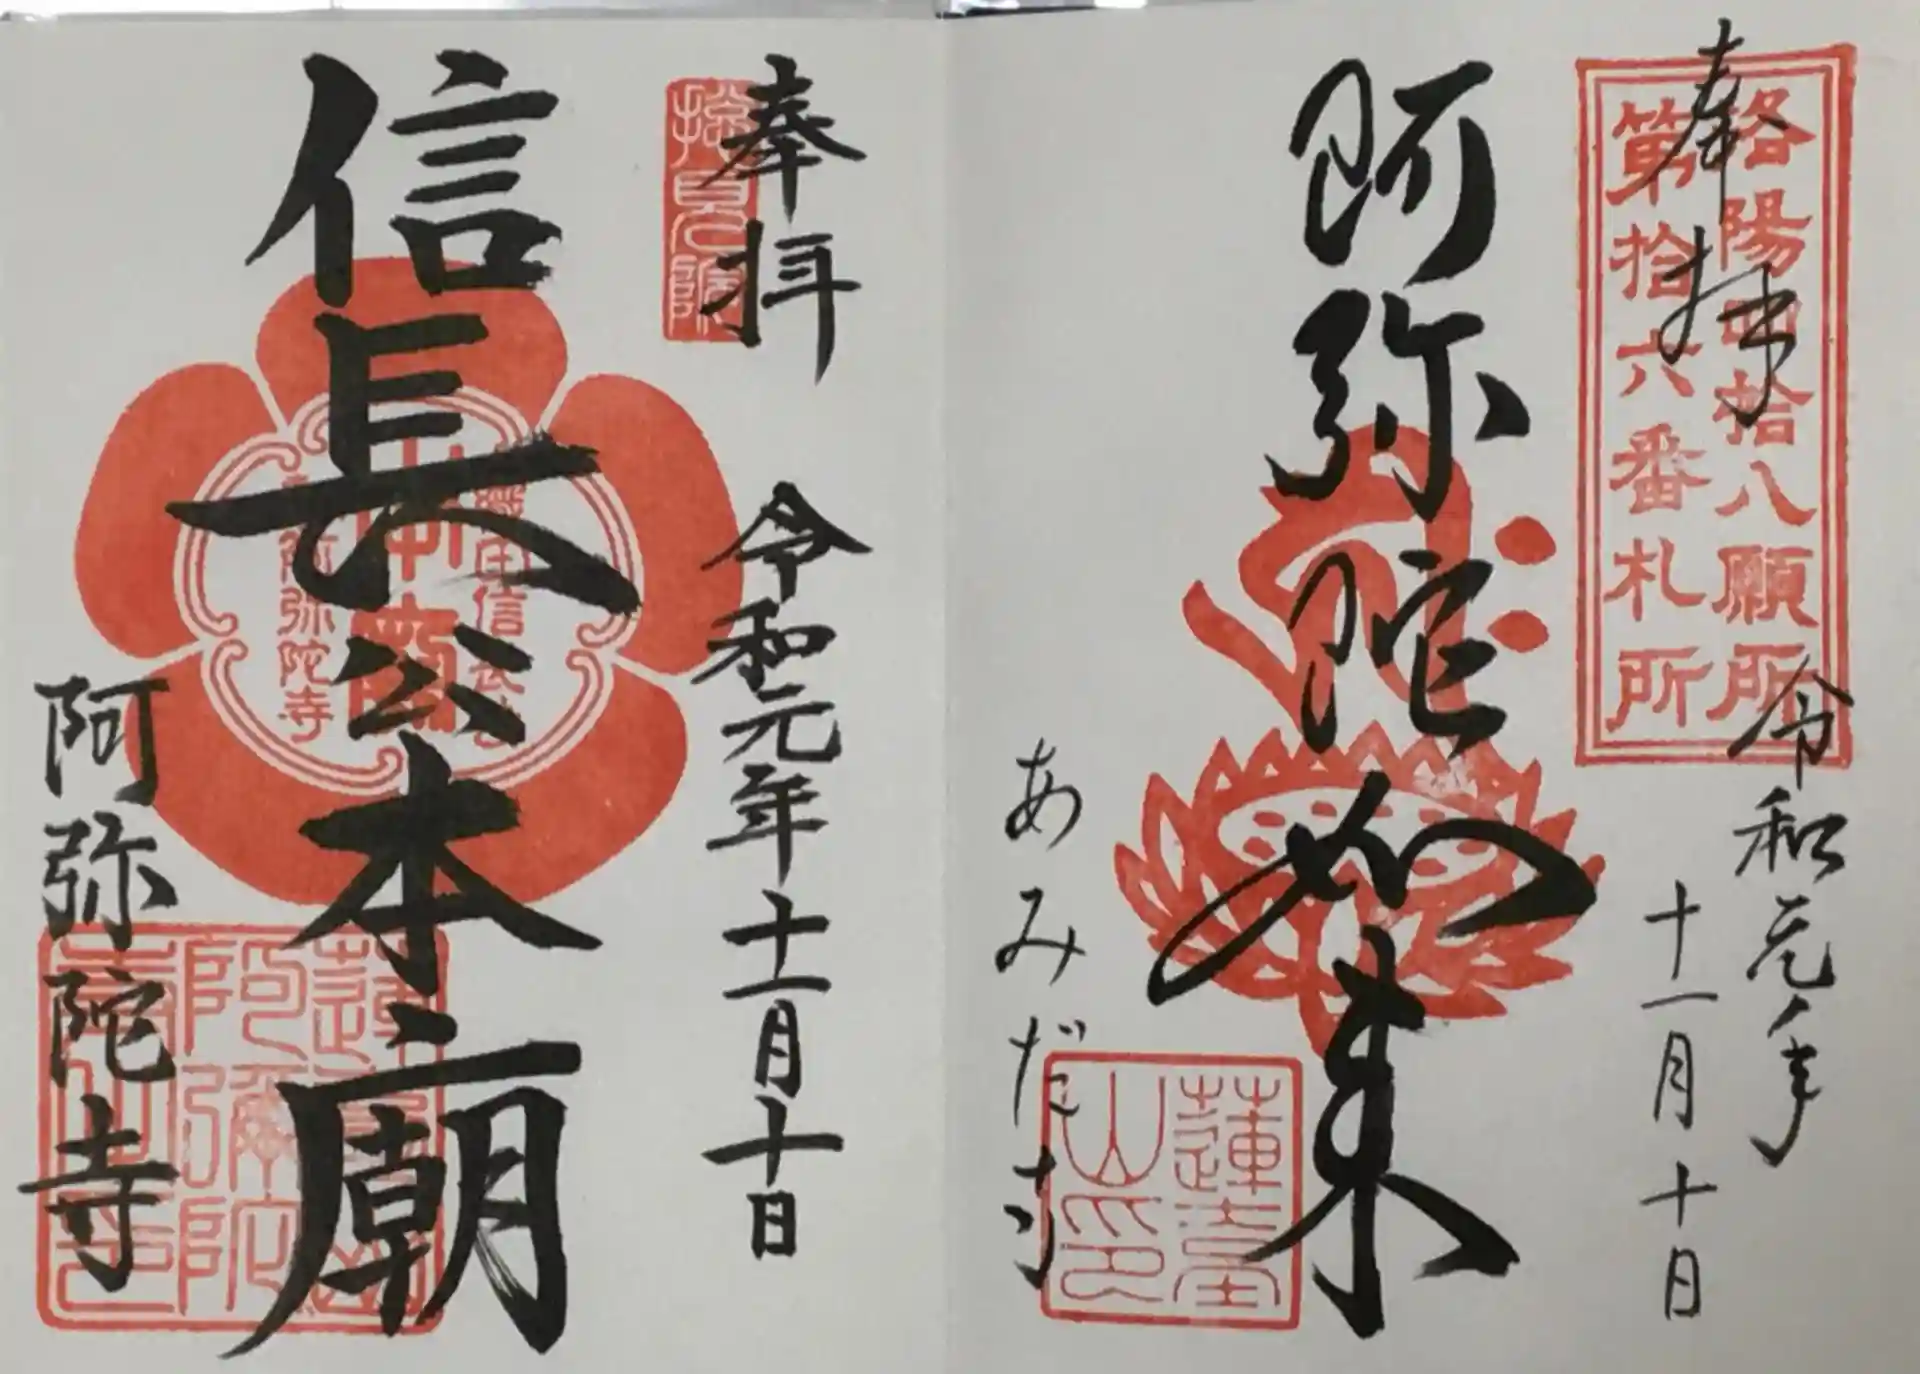 奉拝
洛陽四拾八願所
第拾六番札所
令和元年
十一月十日
阿弥陀如来
あみだ寺
蓮台
山印
奉拝
総見院
令和元年十一月十日
信長公本廟
織田信長公
本廟
阿弥陀寺
阿弥陀寺